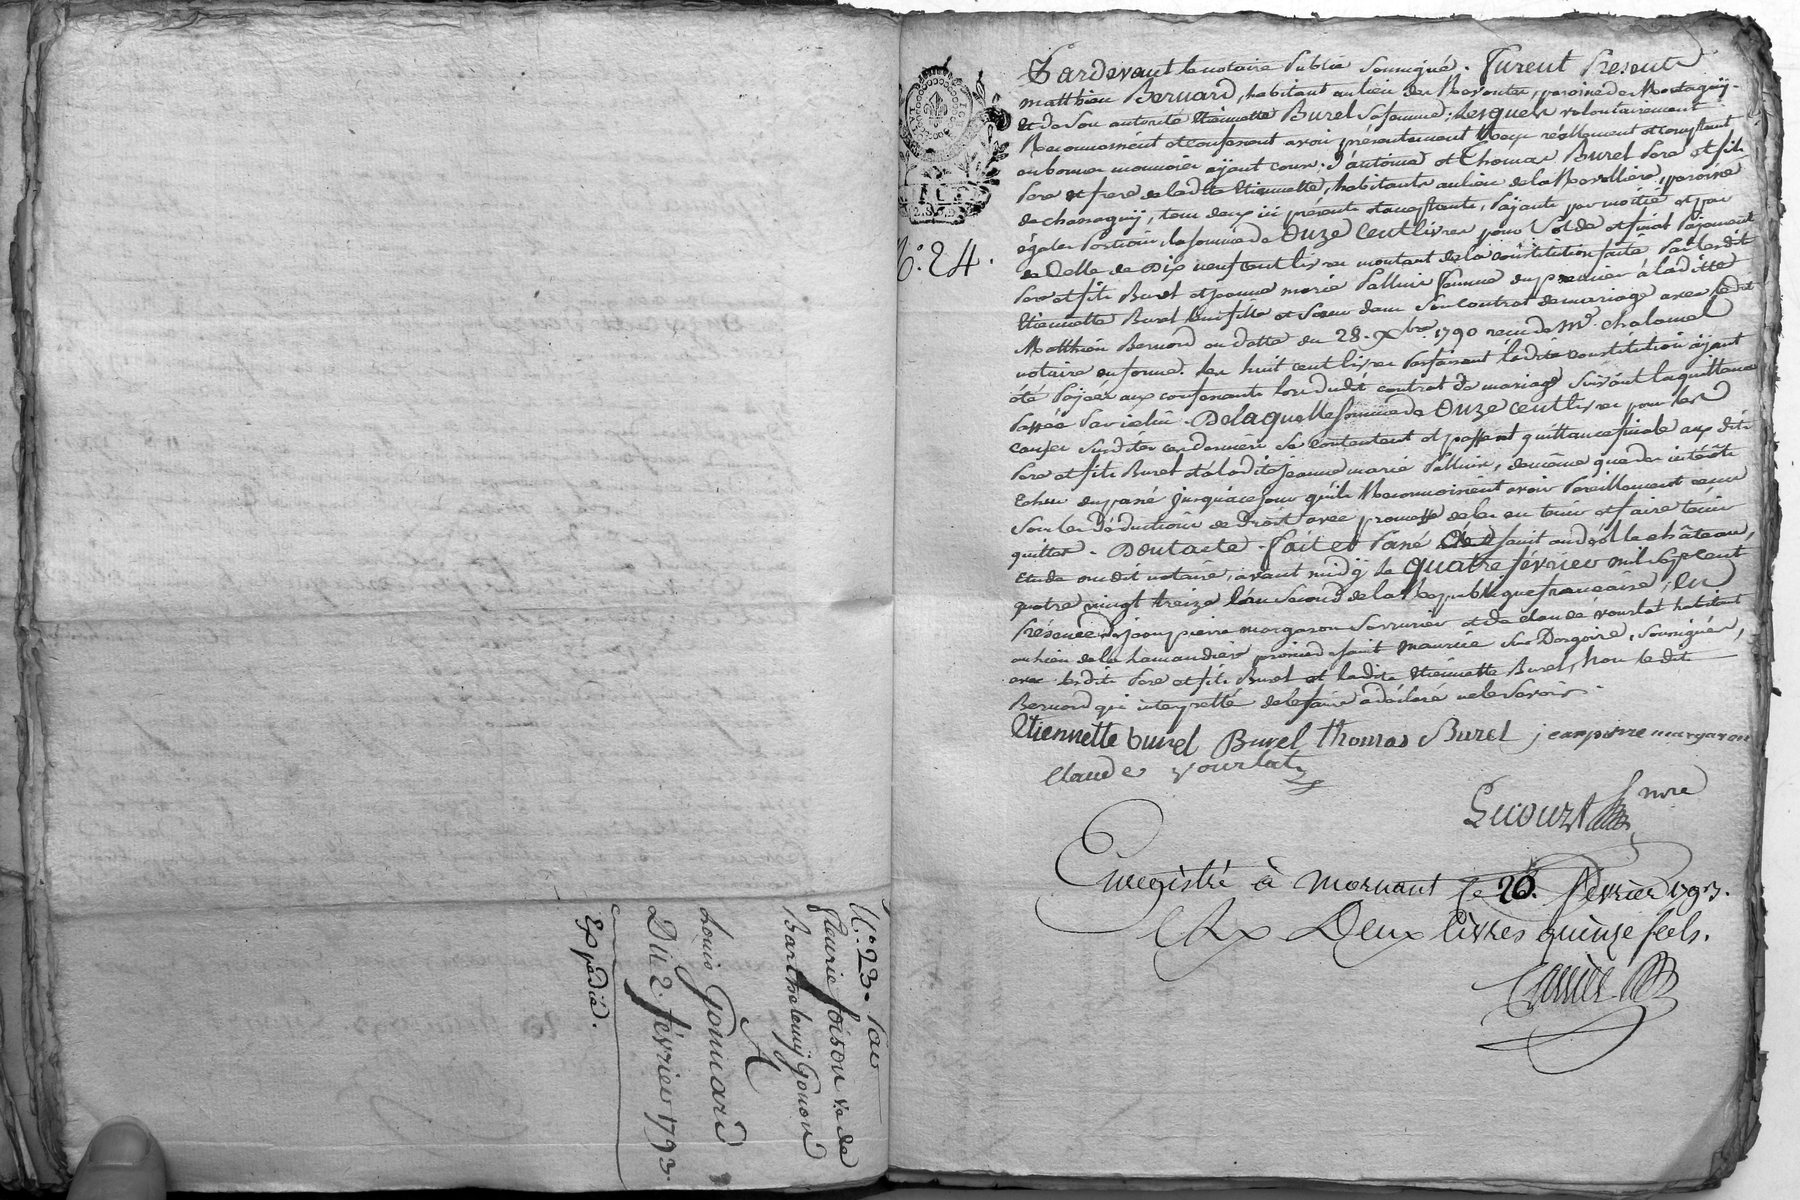 N.° 23. Par
fleurie foison v.e de
Barthelemy Gonon
A
Louis Gonnard
Du 2. février 1793.
Expédié.
N.° 24.
Pardevant le notaire Public soussigné. furent Presents
matthieu Bernard, habitant au lieu des paroisse de Montagny.
et de Son autorité Etiennette Burel Sa femme; Lesquels volontairement
Reconnoissent et confessent avoir présentement Reçu réellement et comptant
en bonnes monnoies ayant cours, d'antoine et Thomas Burel Pere et fils
Pere et frere de ladite Etiennette, habitants au lieu de la paroisse
de chassagny, tous deux ici présents et acceptants, Payants par moitié et par
égales Portions, la somme de Onze cent livres pour Solde et final Payement
de Celle de Dix neuf cent livres montant de la constitution faite Par lesdits
Pere et fils Burel et jeanne marie Pallluis femme du premier à ladite
Etiennette Burel leur fille et Soeur dans Son Contrat de mariage avec ledit
Matthieu Bernard en datte du 28. Xbre 1790 reçu de M.e chalamel
notaire en forme. les huit cent livres Parfaisant ladite constitution ayant
été Payées aux confessants lors dudit contrat de mariage Suivant la quittance
Passée Par icelui. De laquelle somme de Onze cent livres pour les
causes Susdites ces derniers Se contentent et passent quittance finale aux dits
Pere et fils Burel et à ladite jeanne marie de même que des intérêts
Echus du passé jusqu'à ce jour qu'ils Reconnoissent avoir Pareillement reçus
Sous les Déductions de Droit avec promesse de les en tenir et faire tenir
quittes. Dont acte. fait et Passé à Saint andéol le château,
Etude dudit notaire, avant midy le quatre février mil Sept cent
quatre vingt treize l'an Second de la République francaise; En
Présence de jean pierre margaron Serrurier et de claude vourlat habitant
au lieu de la paroisse de Saint Maurice Sur Dargoire, Soussignés,
avec lesdits Pere et fils Burel et ladite Etiennette Burel, Non ledit
Bernard qui interpellé de le faire a déclaré ne le Savoir.
Etiennette burel Burel thomas Burel jeanpierre margaron
Claude vourlat
nore
Enregistré à mornant le 20. février 1793.
Deux livres quinze sols.